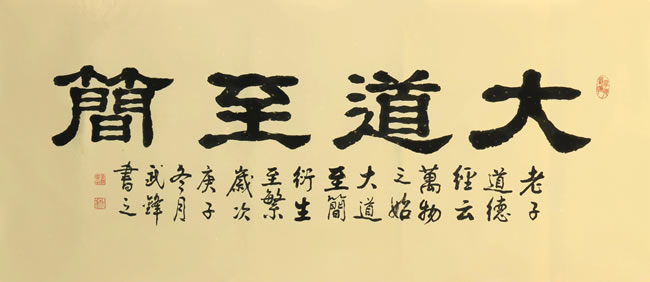 大道至簡
老子
道德
經云
萬物
之始
大道
至簡
衍生
至繁
歲次
庚子
冬月
武鋒
書之